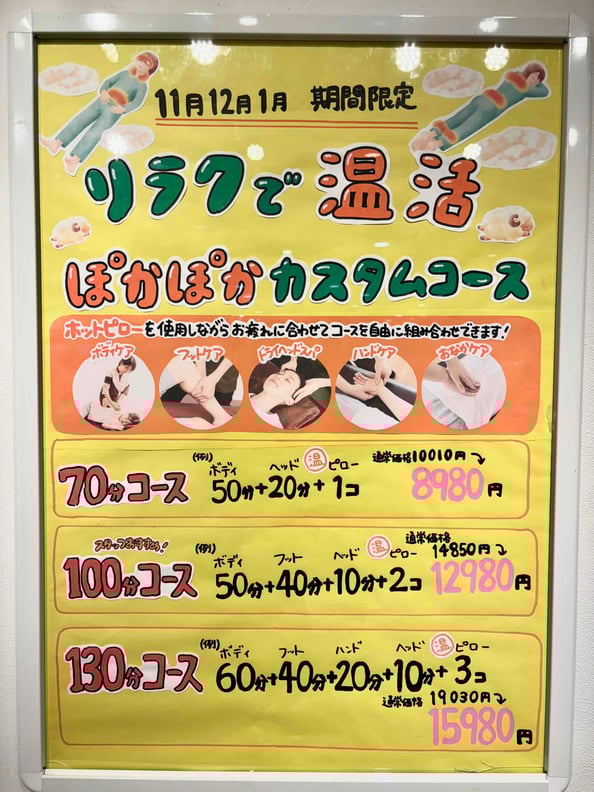 11月12月1月 期間限定
リラクで温活
ぽかぽかカスタムコース
ホットピローを使用しながらお疲れに合わせてコースを自由に組み合わせできます!
ボディケア フットケア ドライヘッドスパ ハンドケア おなかケア
70分コース (例) ボディ ヘッド 温ピロー 通常価格10010円
50分+20分+1コ 8980円
スタッフおすすめ! 通常価格
100分コース (例) ボディ フット ヘッド 温ピロー 14850円
50分+40分+10分+2コ 12980円
130分コース (例) ボディ フット ハンド ヘッド 温ピロー
60分+40分+20分+10分+3コ
通常価格 19030円
15980円